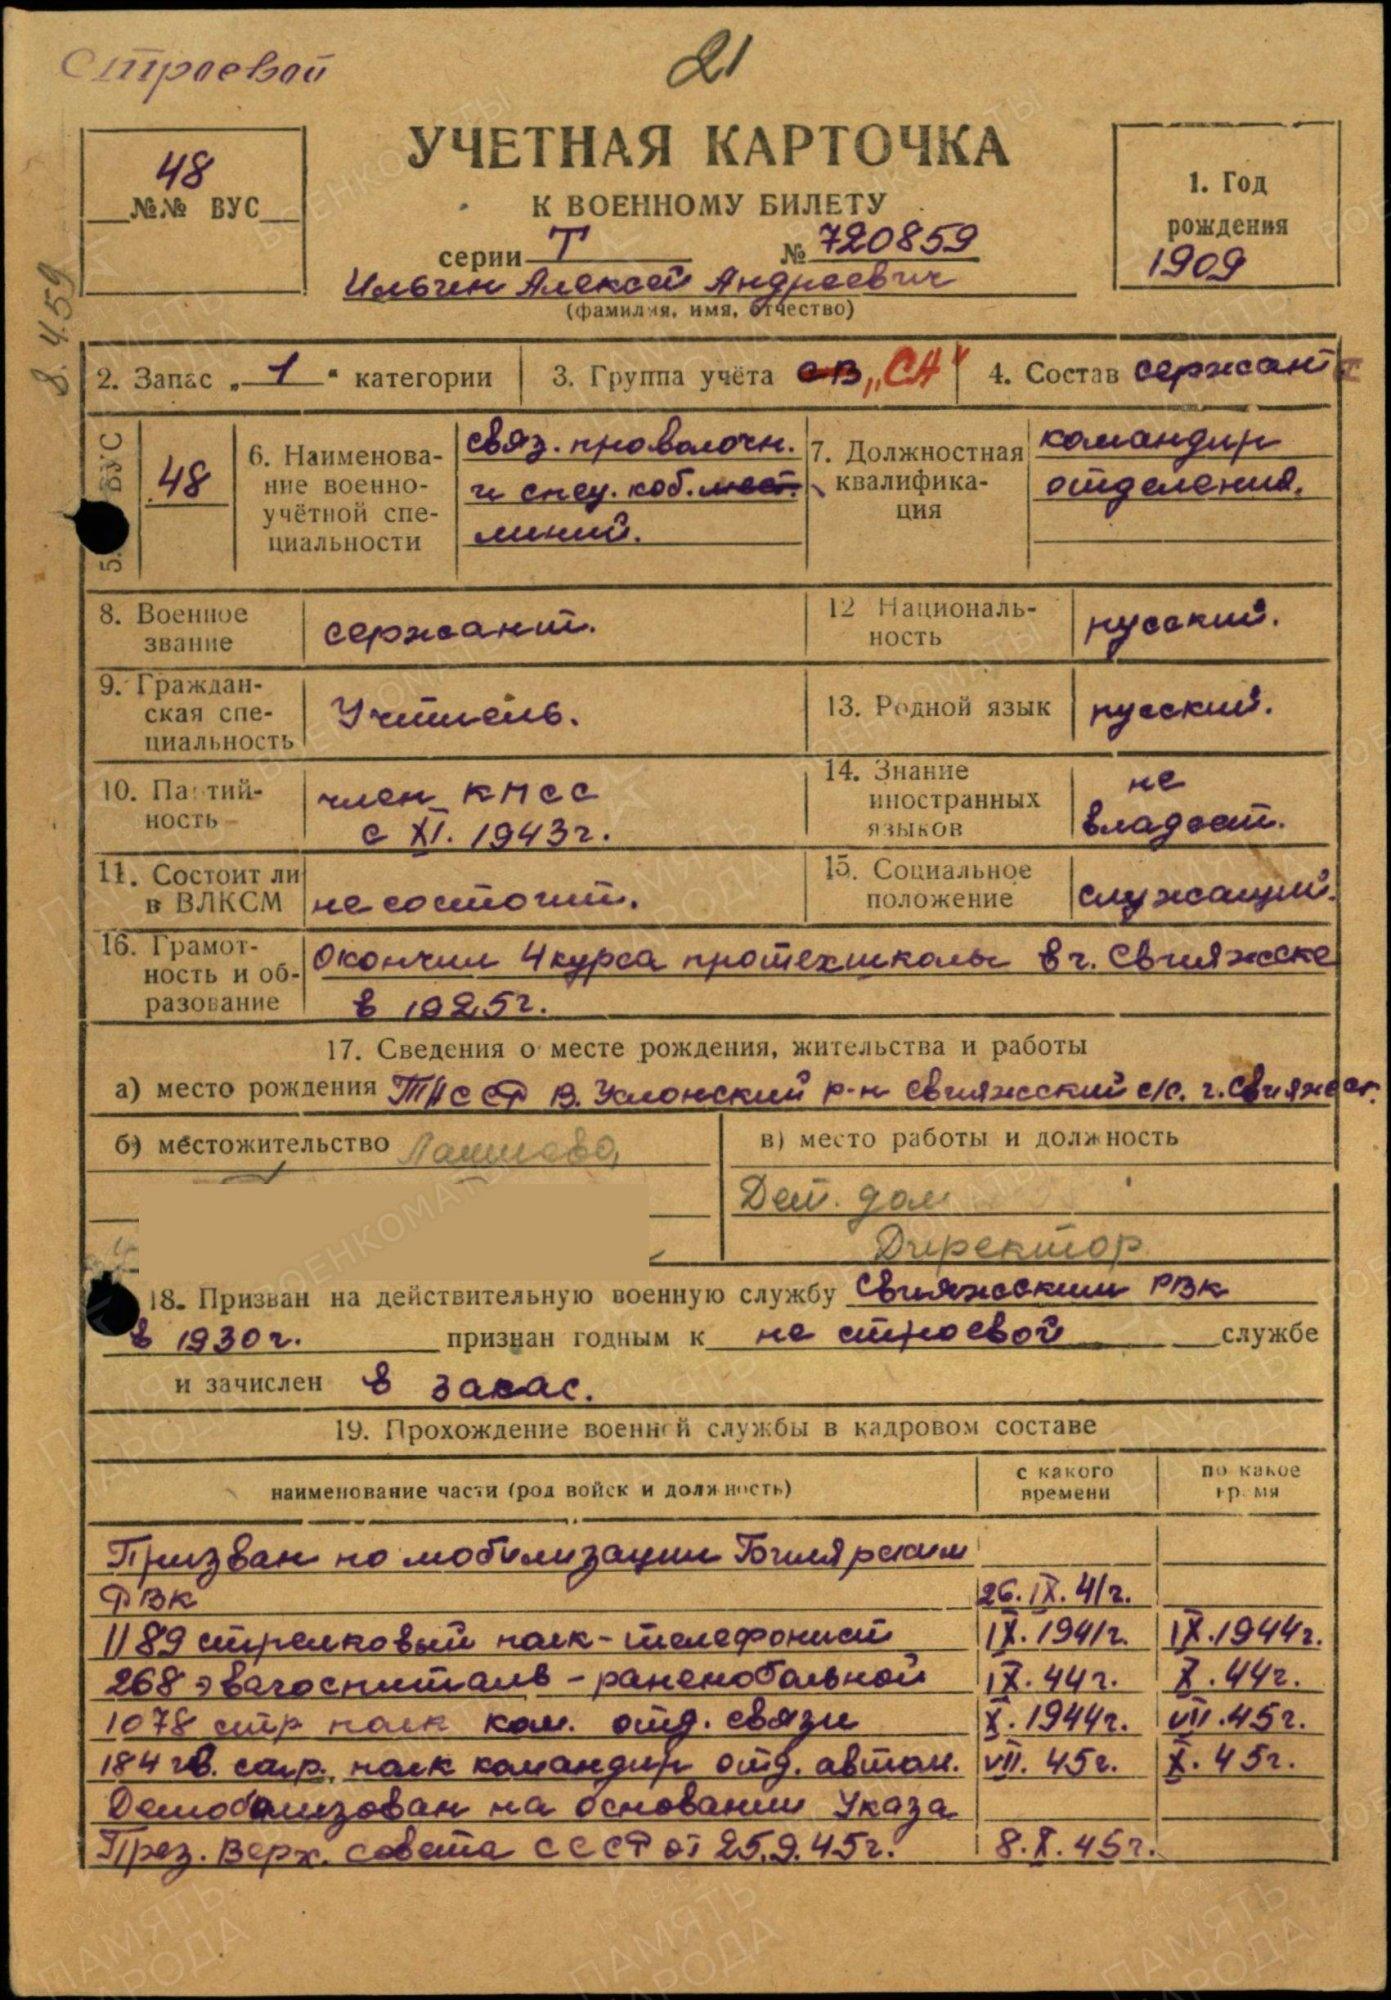 Строевой
21
УЧЕТНАЯ КАРТОЧКА
К ВОЕННОМУ БИЛЕТУ
48
№№ ВУС
серии Т № 720859
1. Год рождения
1909
8.4.59
Ильин Алексей Андреевич
(фамилия, имя, отчество)
2. Запас „1" категории
3. Группа учёта СВ „СА"
4. Состав сержант
5. ВУС
48
6. Наименова-
ние военно-
учётной спе-
циальности
связ. проволочн.
и спец. коб. мест.
линий.
7. Должностная
квалифика-
ция
командир
отделения.
8. Военное
звание
сержант.
12 Националь-
ность
русский.
9. Граждан-
ская спе-
циальность
Учитель.
13. Родной язык
русский.
10. Партий-
ность
член КПСС
с XI. 1943г.
14. Знание
иностранных
языков
не
владеет.
11. Состоит ли
в ВЛКСМ
не состоит.
15. Социальное
положение
служащий.
16. Грамот-
ность и об-
разование
Окончил 4 курса в г. Свияжске
в 1925г.
17. Сведения о месте рождения, жительства и работы
а) место рождения ТАССР В. Услонский р-н Свияжский с/с. г. Свияжск.
б) местожительство Лаишево,
в) место работы и должность
Дет. дом
Директор
18. Призван на действительную военную службу Свияжским РВК
в 1930г. признан годным к не строевой службе
и зачислен в запас.
19. Прохождение военной службы в кадровом составе
наименование части (род войск и должность)
с какого
времени
по какое
время
Призван по мобилизации
РВК 26.IX.41г.
1189 стрелковый полк-телефонист IX.1941г. IX.1944г.
268 эвагоспиталь - раненобольной IX.44г. X.44г.
1078 стр полк ком. отд. связи X.1944г. VII.45г.
184 гв. стр. полк командир отд. автом. VII.45г. X.45г.
Демобилизован на основании Указа
През. Верх. Совета СССР от 25.9.45г. 8.X.45г.
ПАМЯТЬ НАРОДА
ВОЕНКОМАТЫ